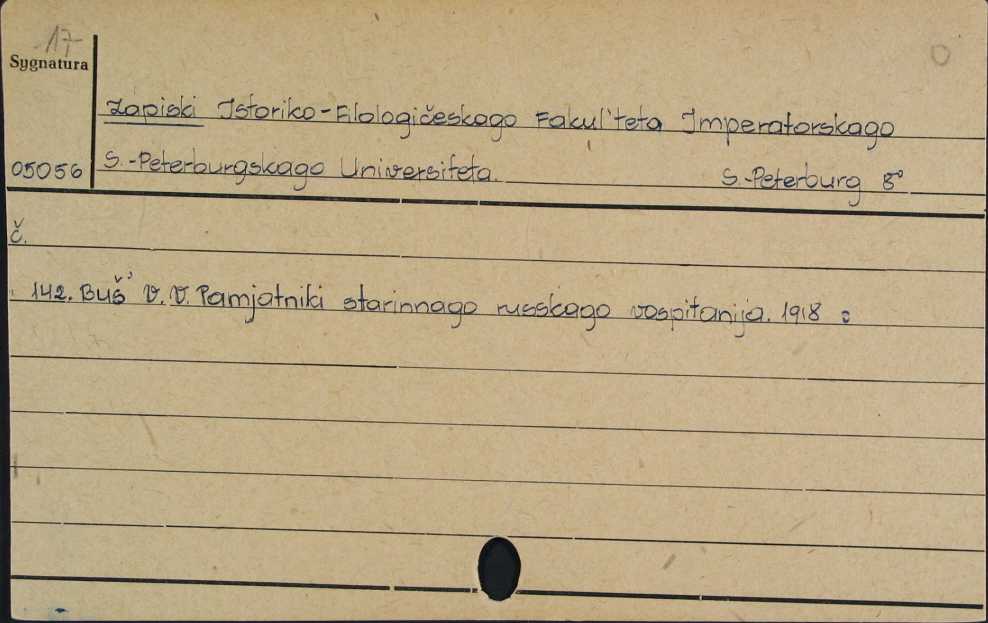 17
Sygnatura
Zapiski Istoriko-Filologičeskago Fakul'teta Imperatorskago
05056 S.-Peterburgskago Universiteta. S.-Peterburg 8°
č.
142. Buš' V. V. Pamjatniki starinnago russkago vospitanija. 1918